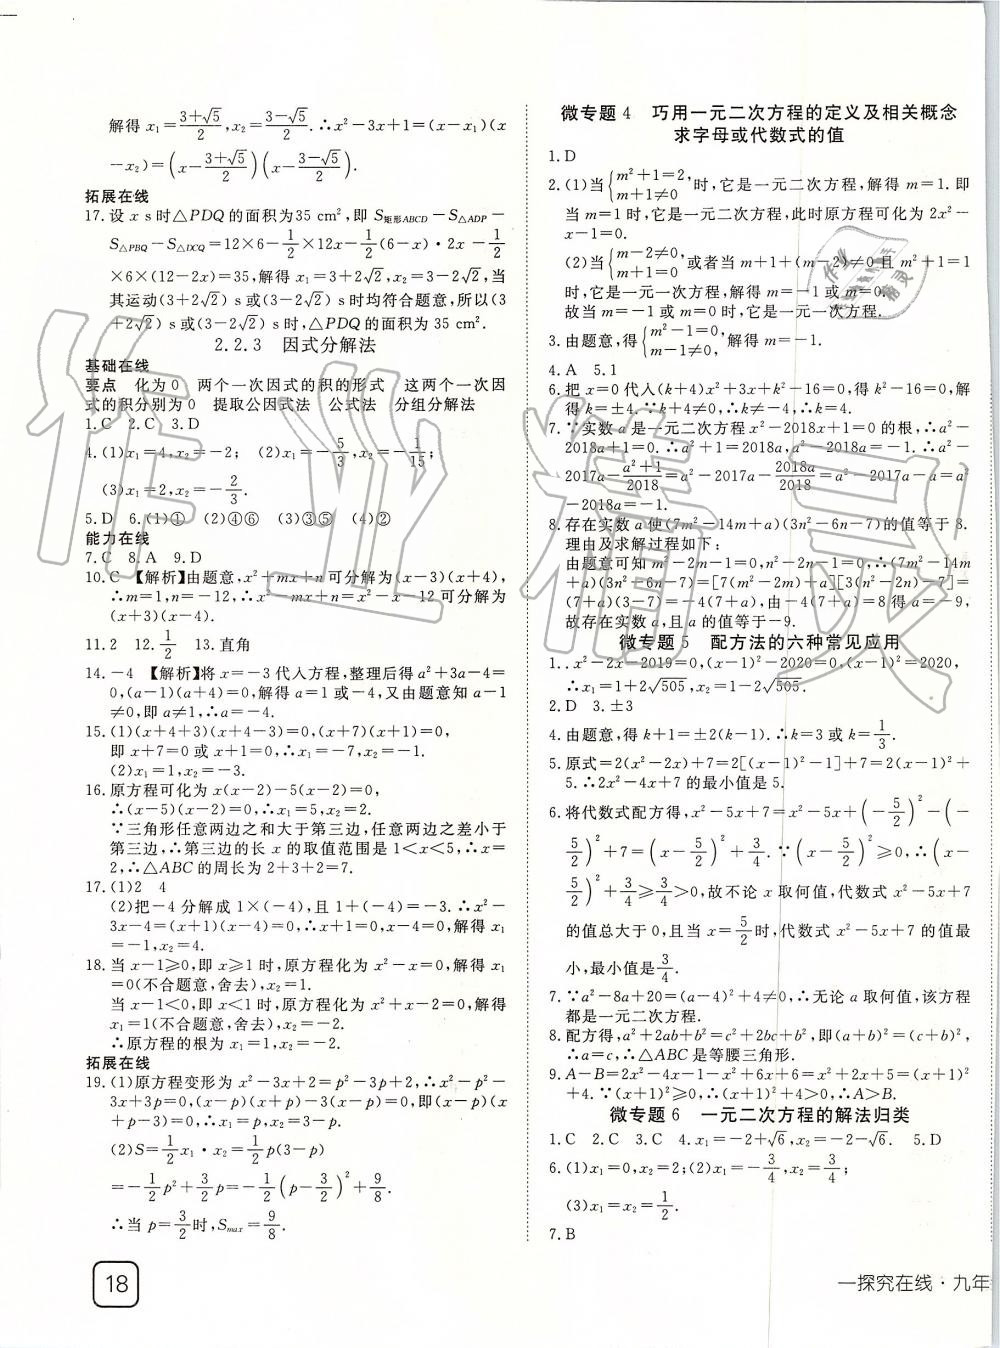 解得 x₁=(3+√5)/2,x₂=(3−√5)/2.∴x²−3x+1=(x−x₁)(x
−x₂)=(x−(3+√5)/2)(x−(3−√5)/2).
拓展在线
17.设 x s时△PDQ的面积为35 cm²,即 S矩形ABCD−S△ADP−
S△PBQ−S△DCQ=12×6−1/2×12x−1/2(6−x)·2x−1/2
×6×(12−2x)=35,解得 x₁=3+2√2,x₂=3−2√2,当
其运动(3+2√2) s或(3−2√2) s时均符合题意,所以(3
+2√2) s或(3−2√2) s时,△PDQ的面积为35 cm².
2.2.3 因式分解法
基础在线
要点 化为0 两个一次因式的积的形式 这两个一次因
式的积分别为0 提取公因式法 公式法 分组分解法
1.C 2.C 3.D
4.(1)x₁=4,x₂=−2; (2)x₁=−5/3,x₂=−1/15;
(3)x₁=2,x₂=−2/3.
5.D 6.(1)① (2)④⑥ (3)③⑤ (4)②
能力在线
7.C 8.A 9.D
10.C 【解析】由题意,x²+mx+n可分解为(x−3)(x+4),
∴m=1,n=−12,∴x²−mx+n=x²−x−12可分解为
(x+3)(x−4).
11.2 12.1/2 13.直角
14.−4 【解析】将x=−3代入方程,整理后得a²+3a−4=
0,(a−1)(a+4)=0,解得a=1或−4,又由题意知a−1
≠0,即a≠1,∴a=−4.
15.(1)(x+4+3)(x+4−3)=0,(x+7)(x+1)=0,
即x+7=0或x+1=0,∴x₁=−7,x₂=−1.
(2)x₁=1,x₂=−3.
16.原方程可化为x(x−2)−5(x−2)=0,
∴(x−5)(x−2)=0,∴x₁=5,x₂=2.
∵三角形任意两边之和大于第三边,任意两边之差小于
第三边,∴第三边的长x的取值范围是1<x<5,∴x=
2,∴△ABC的周长为2+3+2=7.
17.(1)2 4
(2)把−4分解成1×(−4),且1+(−4)=−3.∴x²−
3x−4=(x+1)(x−4)=0,∴x+1=0,x−4=0,解得x₁
=−1,x₂=4.
18.当x−1≥0,即x≥1时,原方程化为x²−x=0,解得x₁
=0(不合题意,舍去),x₂=1.
当x−1<0,即x<1时,原方程化为x²+x−2=0,解得
x₁=1(不合题意,舍去),x₂=−2.
∴原方程的根为x₁=1,x₂=−2.
拓展在线
19.(1)原方程变形为x²−3x+2=p²−3p+2,∴x²−p²−
3x+3p=0,(x−p)(x+p)−3(x−p)=0,即(x−p)(x
+p−3)=0,∴x₁=p,x₂=3−p.
(2)S=1/2x₁·x₂=1/2p(3−p)
=−1/2p²+3/2p=−1/2(p−3/2)²+9/8.
∴当p=3/2时,Smax=9/8.
18
微专题4 巧用一元二次方程的定义及相关概念
求字母或代数式的值
1.D
2.(1)当{m²+1=2, m+1≠0时,它是一元二次方程,解得m=1.即
当m=1时,它是一元二次方程,此时原方程可化为2x²−
x−1=0.
(2)当{m−2≠0, m+1=0或者当m+1+(m−2)≠0且m²+1=1
时,它是一元一次方程,解得m=−1或m=0,
故当m=−1或m=0时,它是一元一次方程.
3.由题意,得{m²−1=0, m−1≠0,解得m=−1.
4.A 5.1
6.把x=0代入(k+4)x²+3x+k²−16=0,得k²−16=0,解
得k=±4.∵k+4≠0,∴k≠−4,∴k=4.
7.∵实数a是一元二次方程x²−2018x+1=0的根,∴a²−
2018a+1=0.∴a²+1=2018a,a²−2018a=−1.∴a²−
2017a−(a²+1)/2018=a²−2017a−2018a/2018=a²−2017a−a=a²
−2018a=−1.
8.存在实数a使(7m²−14m+a)(3n²−6n−7)的值等于8.
理由及求解过程如下:
由题意可知m²−2m−1=0,n²−2n−1=0,∴(7m²−14m
+a)(3n²−6n−7)=[7(m²−2m)+a][3(n²−2n)−7]=
(7+a)(3−7)=−4(7+a),由−4(7+a)=8得a=−9,
故存在实数a,且a的值等于−9.
微专题5 配方法的六种常见应用
1.x²−2x−2019=0,(x−1)²−2020=0,(x−1)²=2020,
∴x₁=1+2√505,x₂=1−2√505.
2.D 3.±3
4.由题意,得k+1=±2(k−1).∴k=3或k=1/3.
5.原式=2(x²−2x)+7=2[(x−1)²−1]+7=2(x−1)²+
5.∴2x²−4x+7的最小值是5.
6.将代数式配方得,x²−5x+7=x²−5x+(−5/2)²−(−
5/2)²+7=(x−5/2)²+3/4.∵(x−5/2)²≥0,∴(x−
5/2)²+3/4≥3/4>0,故不论x取何值,代数式x²−5x+7
的值总大于0,且当x=5/2时,代数式x²−5x+7的值最
小,最小值是3/4.
7.∵a²−8a+20=(a−4)²+4≠0,∴无论a取何值,该方程
都是一元二次方程.
8.配方得,a²+2ab+b²=c²+2bc+b²,即(a+b)²=(c+b)²,
∴a=c,∴△ABC是等腰三角形.
9.A−B=2x²−4x−1−x²+6x+6=x²+2x+5=(x+1)²
+4.∵(x+1)²≥0,∴(x+1)²+4>0,∴A>B.
微专题6 一元二次方程的解法归类
1.C 2.C 3.C 4.x₁=−2+√6,x₂=−2−√6. 5.D
6.(1)x₁=0,x₂=2;(2)x₁=−3/4,x₂=3/4;
(3)x₁=x₂=1/2.
7.B
一探究在线·九年
作业精灵